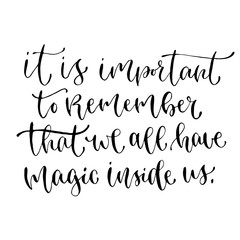 it is important
to remember
that we all have
magic inside us.